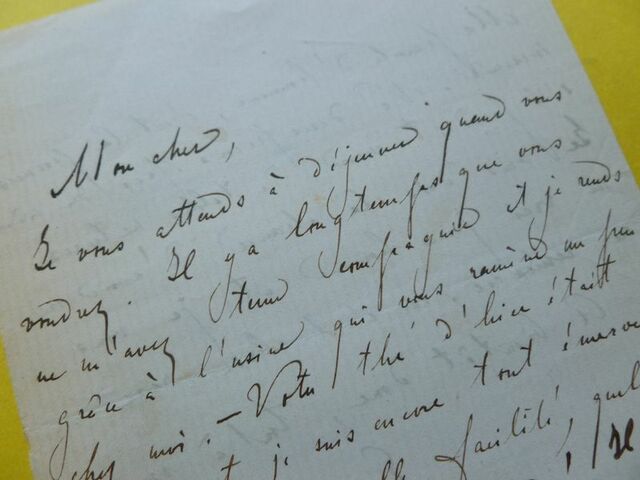 Mon cher,
Je vous attends à déjeuner quand vous
voudrez. Il y a longtemps que vous
ne m'avez tenu compagnie et je rends
grâce à l'usine qui vous ramène un peu
chez moi. — Votre thé d'hier était
et je suis encore tout émerv
facilité, quel